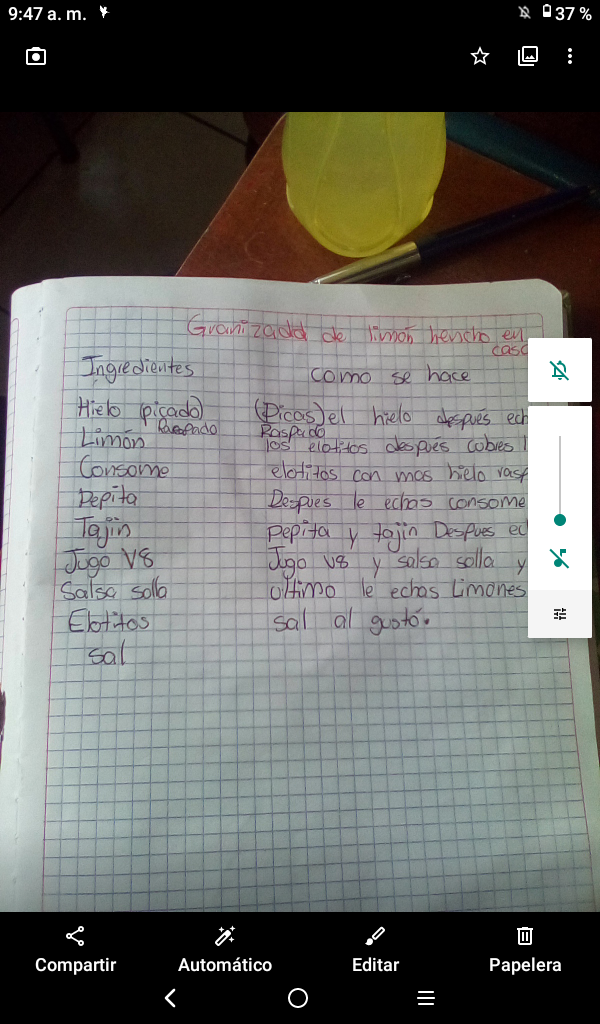 9:47 a. m.
37 %
Granizado de limón hencho en
casa
Ingredientes
como se hace
Hielo (picado)
Raspado
(Picas) el hielo después ech
Raspado
Limón
los elotitos después cobres l
Consome
elotitos con mas hielo rasp
Pepita
Despues le echas consome
Tajin
pepita y tajin Despues ec
Jugo V8
Jugo V8 y salsa solla y
Salsa solla
ultimo le echas Limones
Elotitos
sal al gustó.
sal
Compartir
Automático
Editar
Papelera